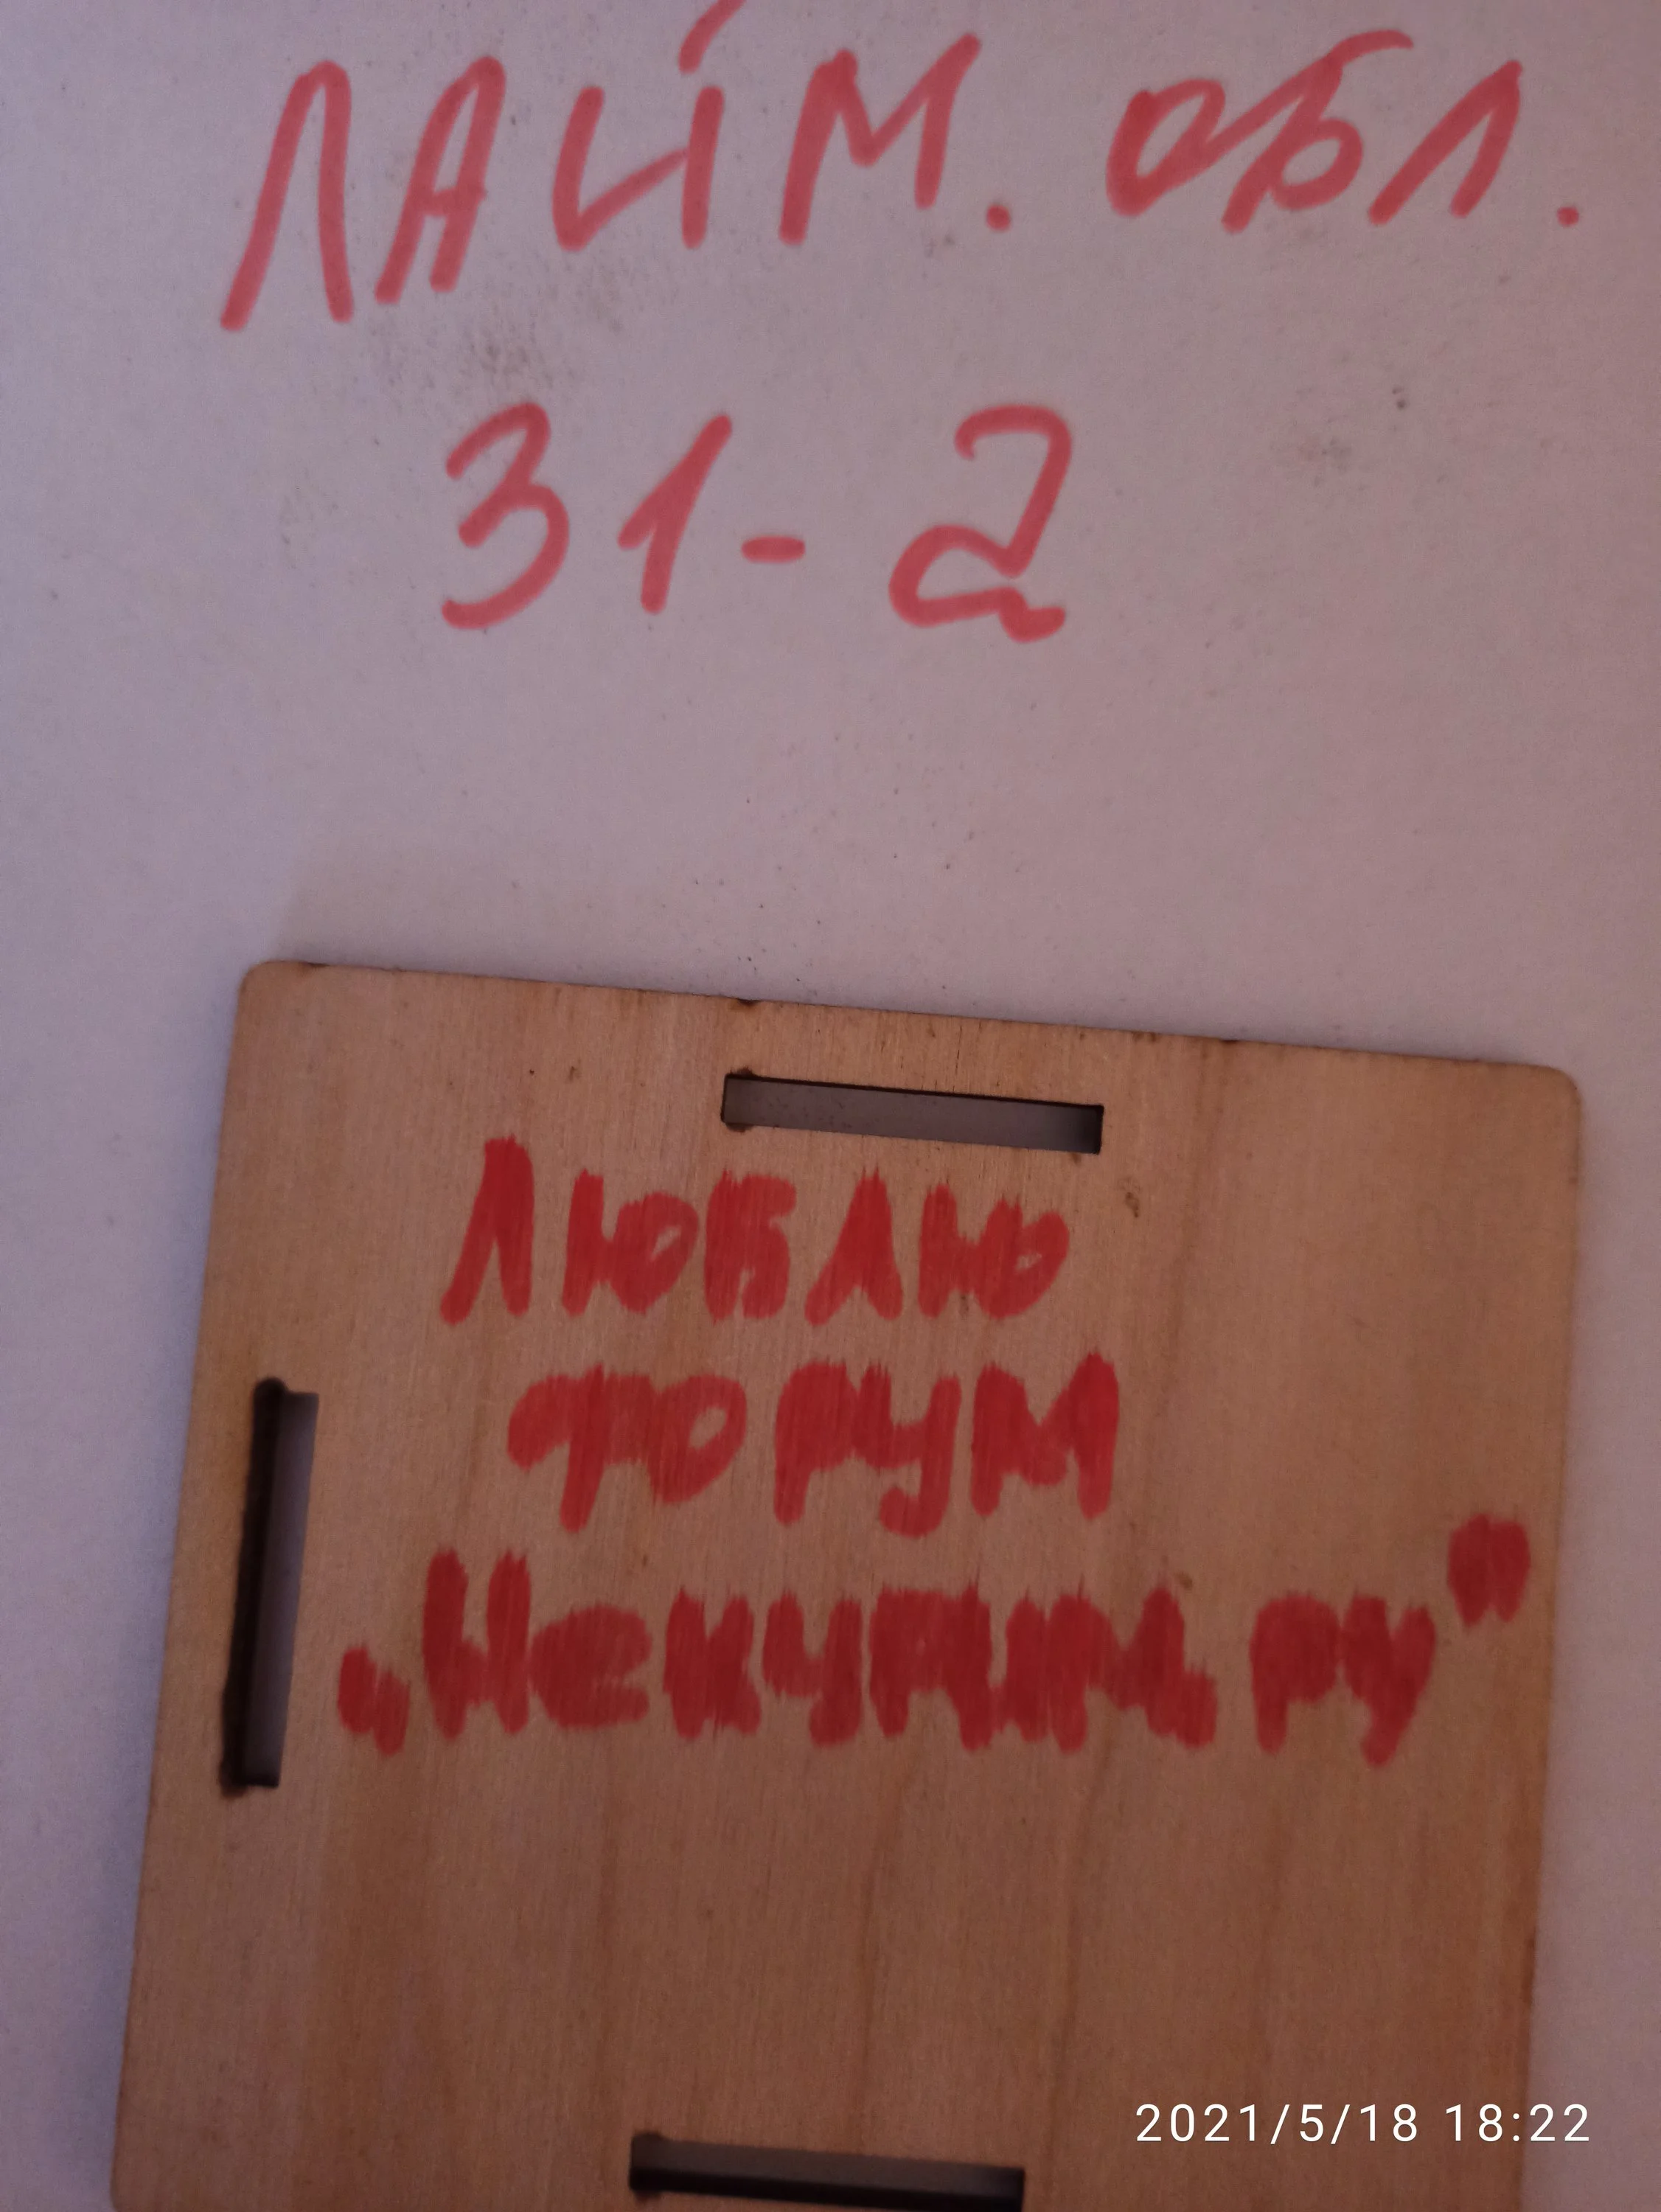 ЛАЙМ. обл.
31-2
Люблю
форум
„Некупи.ру”
2021/5/18 18:22